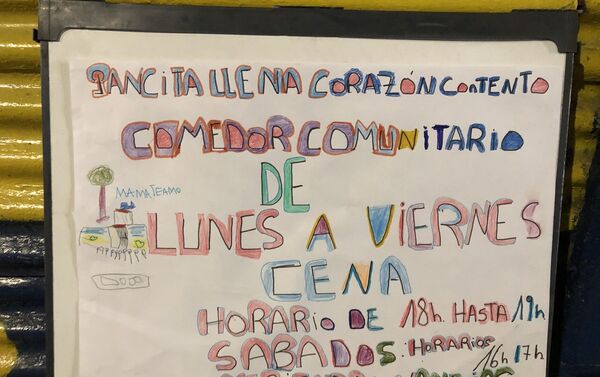 PANCITA LLENA CORAZÓN CONTENTO
COMEDOR COMUNITARIO
DE
MAMA TE AMO
LUNES A VIERNES
CENA
HORARIO DE 18h. HASTA 19h
SABADOS: HORARIOS
16h 17h